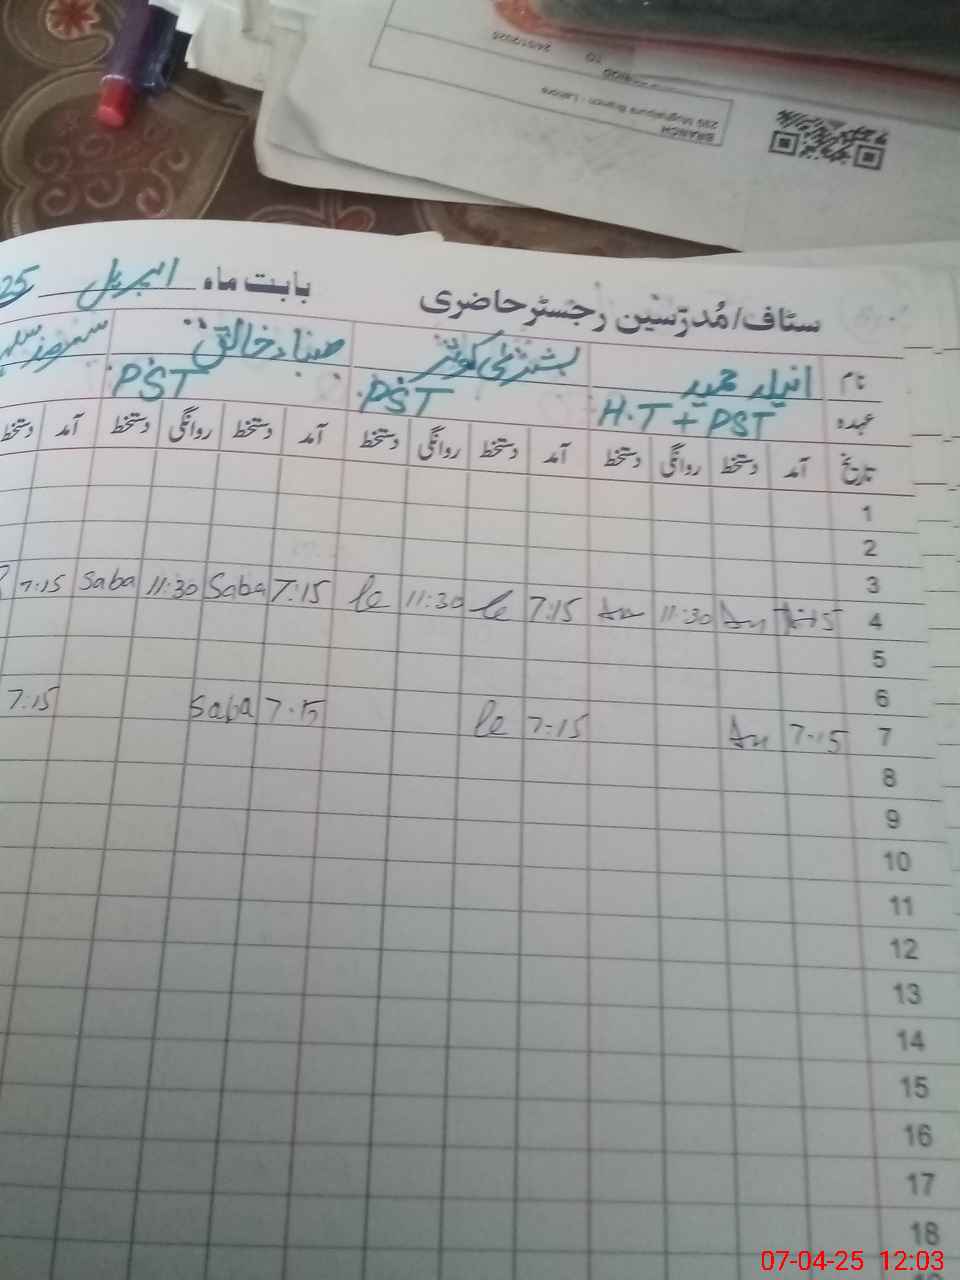 24/01/2025
TO
BRANCH
299 Mughalpura Branch - Lahore
سٹاف/مُدرّسین رجسٹر حاضری بابت ماہ اپریل 25
نام انیلہ حمید بشریٰ کوثر صباء خالق
عہدہ H.T + PST PST PST
تاریخ آمد دستخط روانگی دستخط آمد دستخط روانگی دستخط آمد دستخط روانگی دستخط آمد دستخط
1
2
3
4 7:15 An 11:30 An 7:15 le 11:30 le 7:15 Saba 11:30 Saba 7:15
5
6
7 7:15 An 7:15 le 7:15 Saba 7:15
8
9
10
11
12
13
14
15
16
17
18
07-04-25 12:03